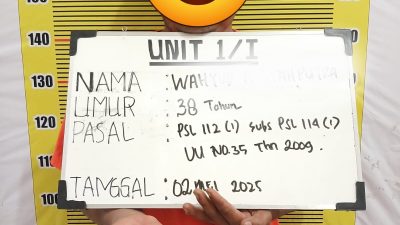 UNIT 1/I
NAMA : WAHYU
UMUR : 38 Tahun
PASAL : PSL 112 (1) Subs PSL 114 (1)
UU NO.35 Thn 2009.
TANGGAL : 02 MEI 2025
140
140
130
130
120
120
110